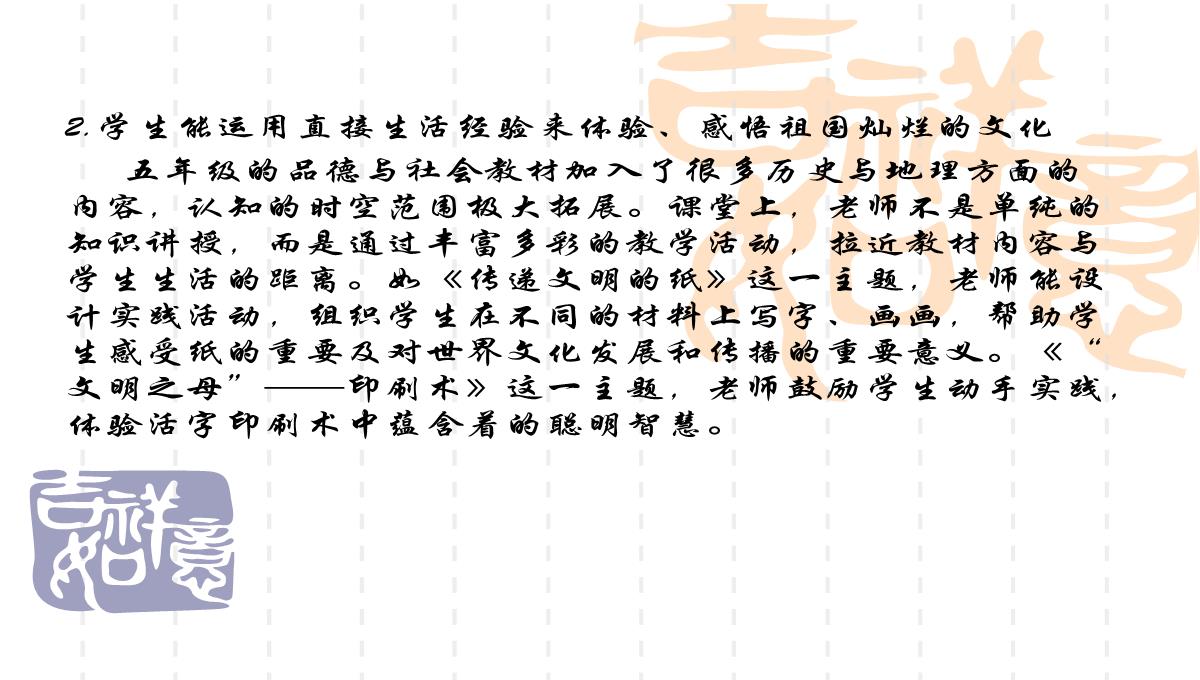 吉祥如意
2.学生能运用直接生活经验来体验、感悟祖国灿烂的文化
五年级的品德与社会教材加入了很多历史与地理方面的
内容，认知的时空范围极大拓展。课堂上，老师不是单纯的
知识讲授，而是通过丰富多彩的教学活动，拉近教材内容与
学生生活的距离。如《传递文明的纸》这一主题，老师能设
计实践活动，组织学生在不同的材料上写字、画画，帮助学
生感受纸的重要及对世界文化发展和传播的重要意义。《“
文明之母”——印刷术》这一主题，老师鼓励学生动手实践，
体验活字印刷术中蕴含着的聪明智慧。
吉祥如意